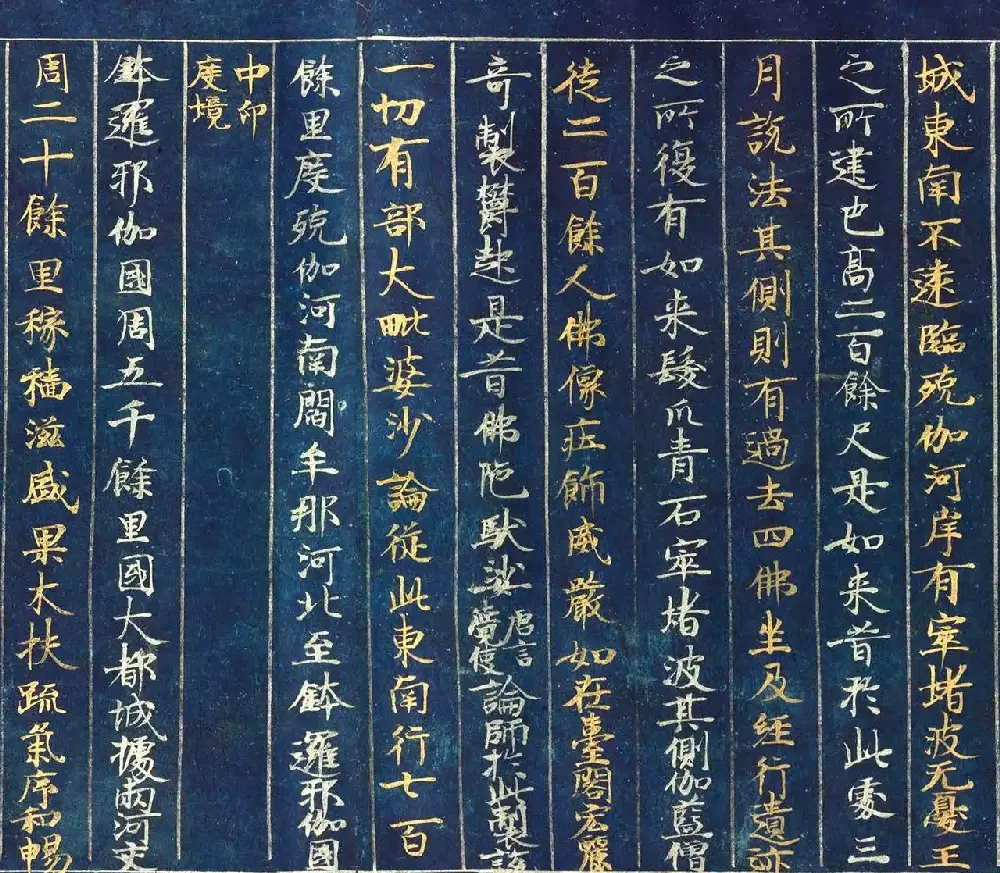 城東南不遠臨殑伽河岸有窣堵波无憂王
之所建也高二百餘尺是如来昔於此處三
月說法其側則有過去四佛坐及經行遺跡
之所復有如来髮爪青石窣堵波其側伽藍僧
徒二百餘人佛像莊飾威嚴如在臺閣宏麗
奇製欝起是昔佛陁馱娑唐言覺使論師於此製說
一切有部大毗婆沙論從此東南行七百
餘里度殑伽河南閻牟那河北至鉢邏耶伽國
中印度境
鉢邏耶伽國周五千餘里國大都城據兩河交
周二十餘里稼穡滋盛果木扶疏氣序和暢